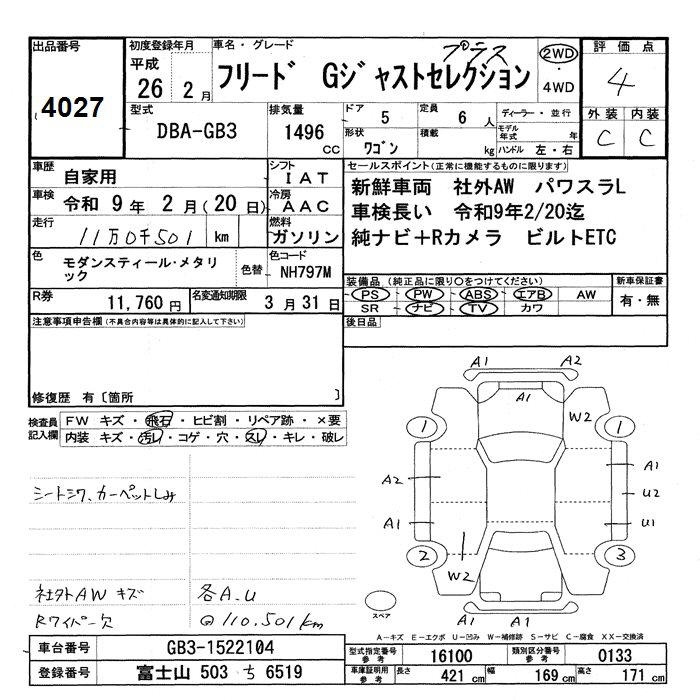 出品番号
4027
初度登録年月
平成
26 2 月
車名・グレード
フリード Gジャストセレクション
プラス
2WD
・
4WD
評価点
4
型式
DBA-GB3
排気量
1496
CC
ドア 5
定員 6 人
形状 ワゴン
積載 kg
ディーラー・並行
モデル年式 年
ハンドル 左・右
外装 内装
C C
車歴 自家用
シフト IAT
車検 令和 9 年 2 月(20 日)
冷房 AAC
走行 11万0千501 km
燃料 ガソリン
色 モダンスティール・メタリ
ック
色替
色コード NH797M
R券 11,760 円
名変通知期限 3 月 31 日
セールスポイント(正常に機能するものに限ります)
新鮮車両 社外AW パワスラL
車検長い 令和9年2/20迄
純ナビ+Rカメラ ビルトETC
装備品(純正品に限り○をつけてください)
新車保証書
PS PW ABS エアB AW
SR ナビ TV カワ
有・無
後日品
注意事項申告欄(不具合内容等は具体的に記入して下さい)
修復歴 有〔箇所 〕
検査員
記入欄
FW キズ・飛石・ヒビ割・リペア跡・×要
内装 キズ・汚レ・コゲ・穴・スレ・キレ・破レ
シートシワ、カーペットしみ
社外AW キズ 各A.U
Rワイパー欠 @110,501km
A1 A2
A1
W2
1 1
A2 A1
U2
A1 U1
2 3
W2
スペア
A1 A1
A-キズ E-エクボ U-凹み W-補修跡 S-サビ C-腐食 XX-交換済
車台番号 GB3-1522104
登録番号 富士山 503 ち 6519
型式指定番号
参考
16100
類別区分番号
参考
0133
車庫証明用
参考
長さ 421 cm
幅 169 cm
高さ 171 cm